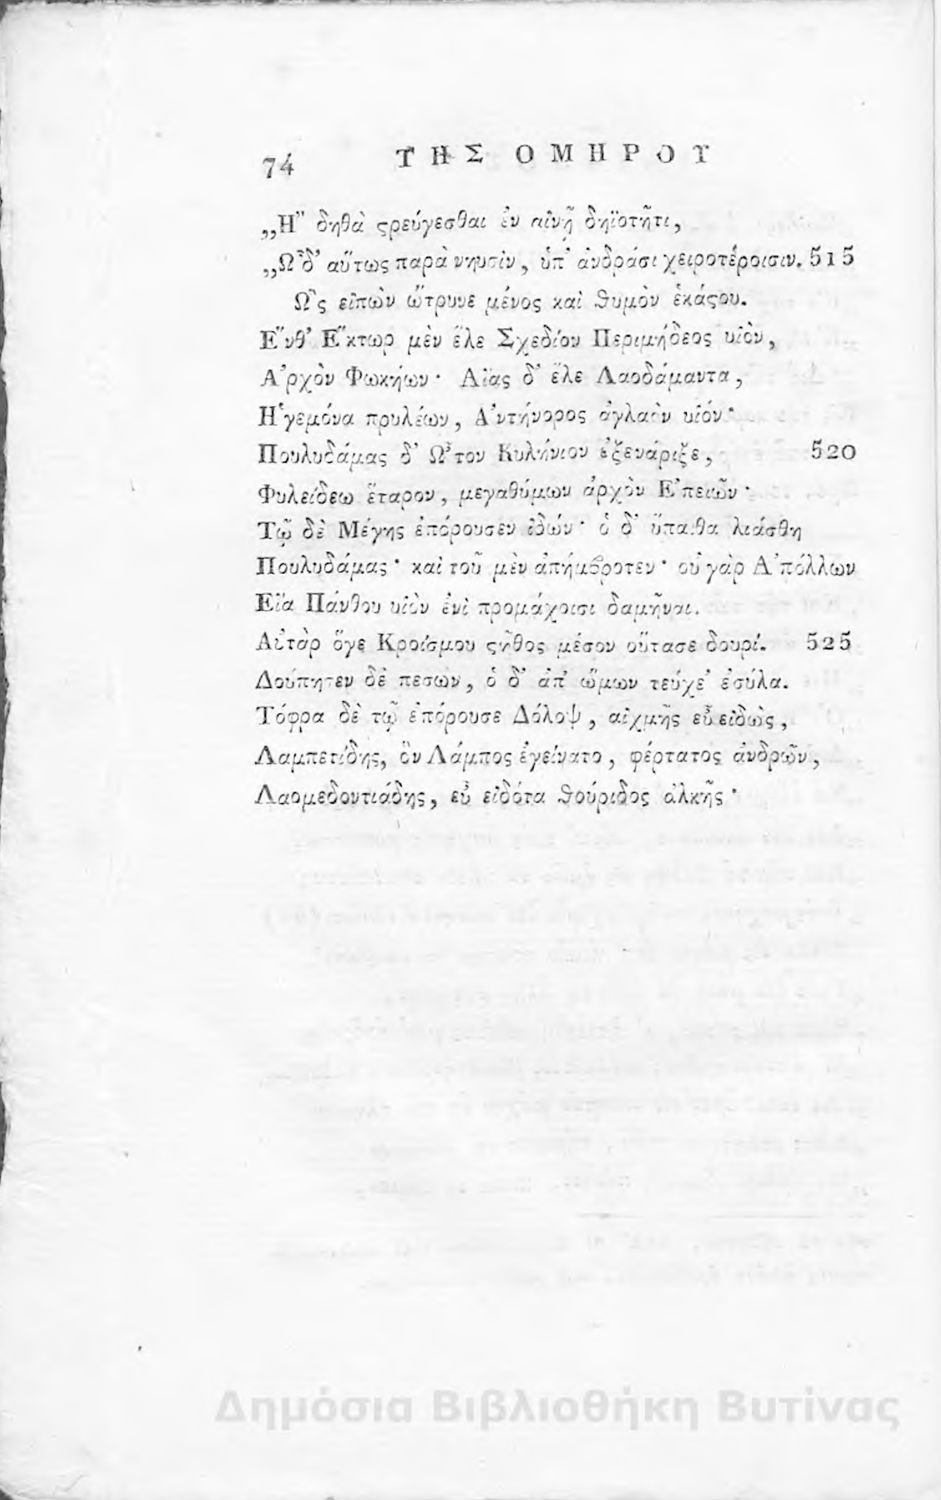 74 ΤΗΣ ΟΜΗΡΟΥ
„Η" δηθὰ ϛρεύγεσθαι ἐν αἰνῇ δηϊοτῆτι,
„Ω῟δ' αὔτως παρὰ νηυσὶν, ὑπ' ἀνδράσι χειροτέροισιν. 515
Ω῝ς εἰπὼν ὤτρυνε μένος καὶ θυμὸν ἑκάϛου.
Ε῎νθ' Ε῞κτωρ μὲν ἕλε Σχεδίον Περιμήδεος υἱὸν,
Α᾿ρχὸν Φωκήων· Αἴας δ' ἕλε Λαοδάμαντα,
Η῾γεμόνα πρυλέων, Α᾿ντήνορος ἀγλαὸν υἱόν·
Πουλυδάμας δ' Ω῏τον Κυλήνιον ἐξενάριξε, 520
Φυλείδεω ἕταρον, μεγαθύμων ἀρχὸν Ε᾿πειῶν·
Τῷ δὲ Μέγης ἐπόρουσεν ἰδών· ὁ δ' ὕπαιθα λιάσθη
Πουλυδάμας· καὶ τοῦ μὲν ἀπήμβροτεν· οὐ γὰρ Α᾿πόλλων
Εἴα Πάνθου υἱὸν ἐνὶ προμάχοισι δαμῆναι.
Αὐτὰρ ὅγε Κροίσμου ϛῆθος μέσον οὔτασε δουρί. 525
Δούπησεν δὲ πεσων, ὁ δ' ἀπ' ὤμων τεύχε' ἐσύλα.
Τόφρα δὲ τῷ ἐπόρουσε Δόλοψ, αἰχμῆς εὖ εἰδὼς,
Λαμπετίδης, ὃν Λάμπος ἐγείνατο, φέρτατος ἀνδρῶν,
Λαομεδοντιάδης, εὖ εἰδότα θούριδος ἀλκῆς·
Δημόσια Βιβλιοθήκη Βυτίνας